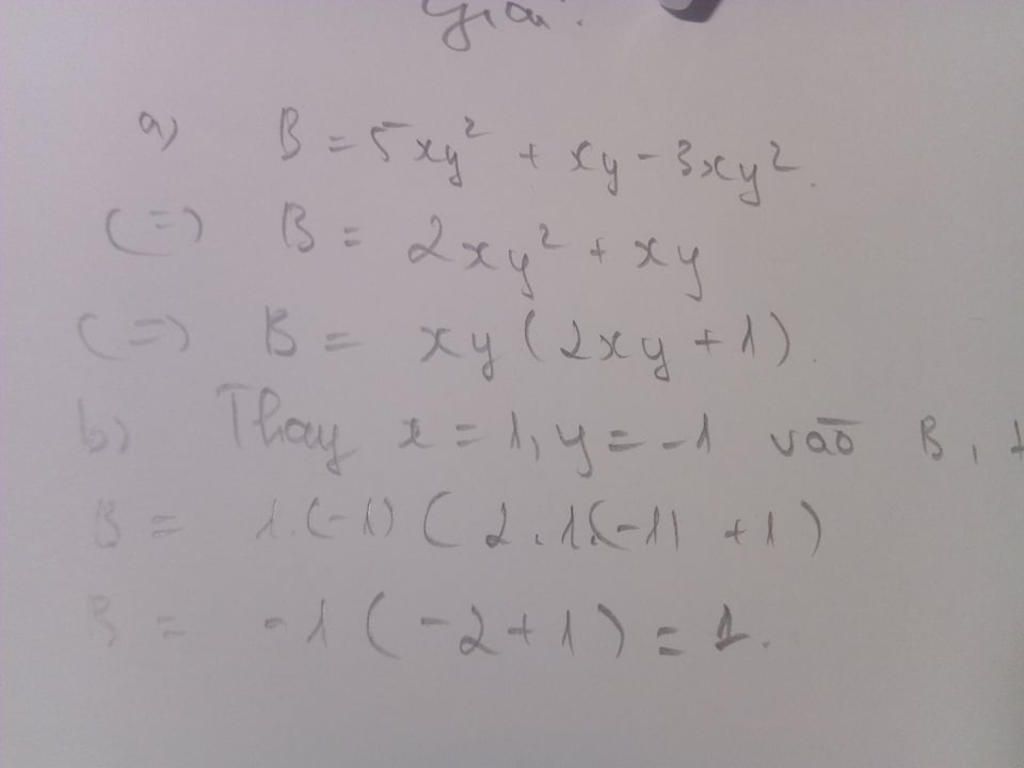 Giải:
a) B = 5xy² + xy - 3xy².
(=) B = 2xy² + xy
(=) B = xy(2xy + 1).
b) Thay x = 1, y = -1 vào B,
B = 1.(-1)(2.1.(-1) + 1)
B = -1(-2+1) = 1.